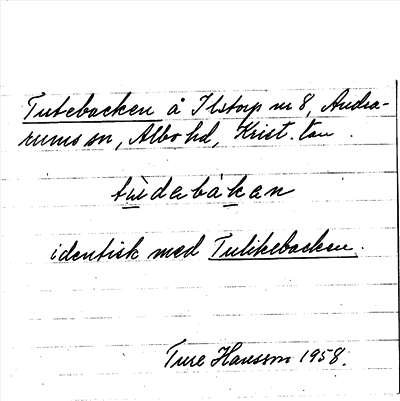 Tutebacken å Ilstorp nr 8, Andra-
rums sn, Albo hd, Krist. län.
tùdebákan
identisk med Tulikebacken.
Ture Hansson 1958.